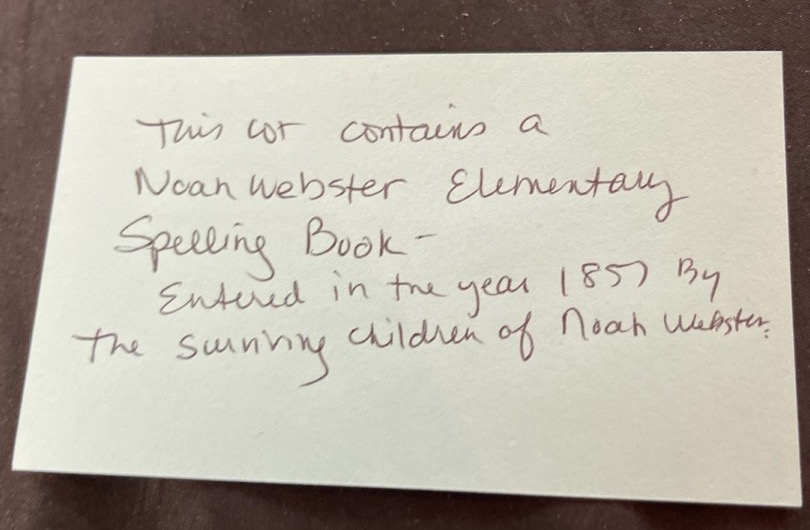 This lot contains a
Noah Webster Elementary
Spelling Book-
Entered in the year 1857 By
the surviving children of Noah Webster.